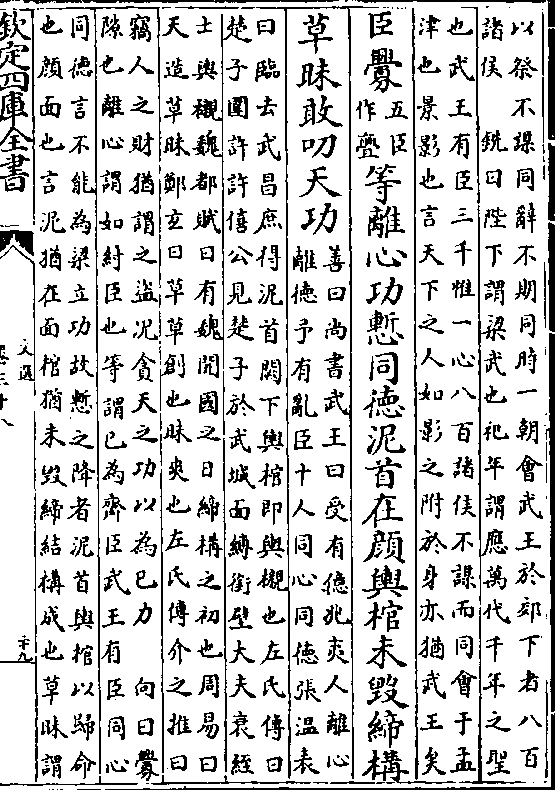 以祭不謀同辭不期同時一朝會武王於郊下者八百
諸侯　銑曰陛下謂梁武也祀年謂應萬代千年之聖
也武王有臣三千惟一心八百諸侯不謀而同會于孟
津也景影也言天下之人如影之附於身亦猶武王矣
臣釁五臣作亹等離心功慙同德泥首在顔輿棺未毁締構
草昧敢叨天功善曰尚書武王曰受有億兆夷人離心
離德予有亂臣十人同心同德張温表
曰臨去武昌庶得泥首闕下輿棺即輿櫬也左氏傳曰
楚子圍許許僖公見楚子於武城面縛銜璧大夫衰絰
士輿櫬魏都賦曰有魏開國之日締構之初也周易曰
天造草昧鄭玄曰草草創也昧爽也左氏傳介之推曰
竊人之財猶謂之盜况貪天之功以為已力　向曰釁
隙也離心謂如紂臣也等謂已為齊臣武王有臣同心
同德言不能為梁立功故慙之降者泥首輿棺以歸命
也顔面也言泥猶在面棺猶未毁締結構成也草昧謂
欽定四庫全書
文選
卷三十八
二十九